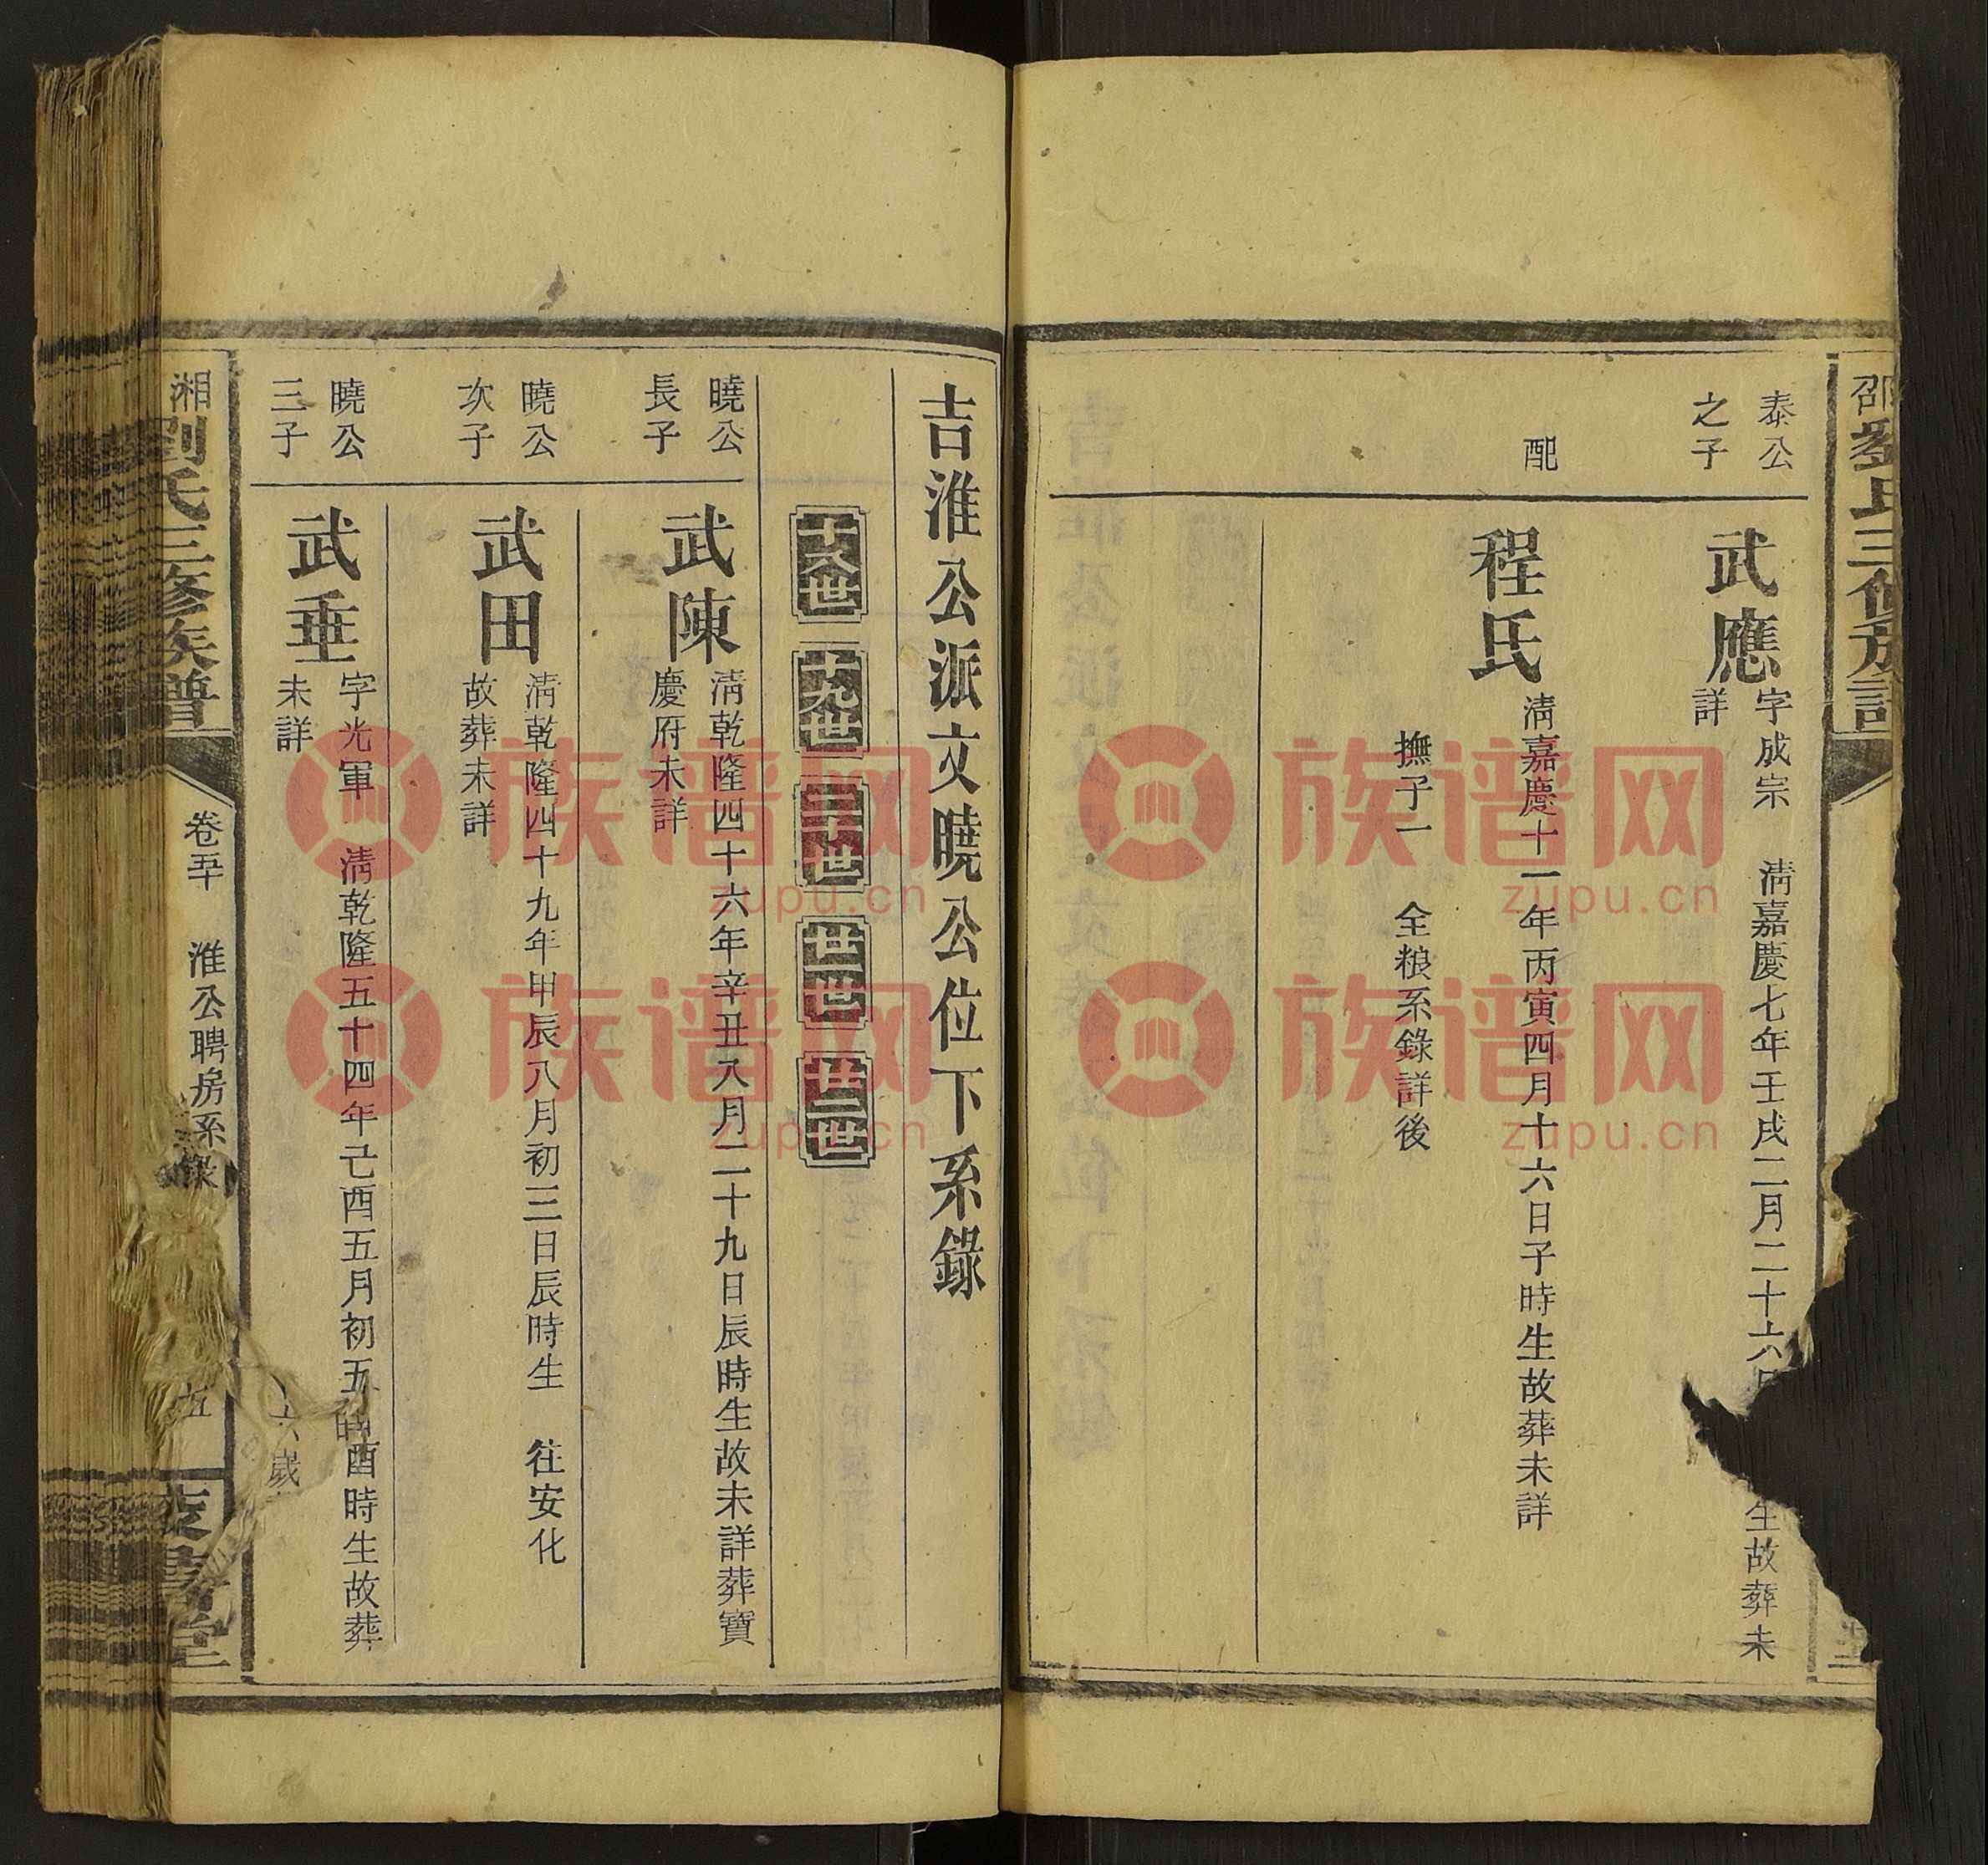 泰公
之子
武應
字成宗 清嘉慶七年壬戌二月二十六日
生故葬未
詳
配
程氏
清嘉慶十一年丙寅四月十六日子時生故葬未詳
撫子一 全粮系錄詳後
吉淮公派文曉公位下系錄
十八世 十九世 二十世 廿一世 廿二世
曉公
長子
武陳
清乾隆四十六年辛丑八月二十九日辰時生故未詳葬寶
慶府未詳
曉公
次子
武田
清乾隆四十九年甲辰八月初三日辰時生 往安化
故葬未詳
曉公
三子
武垂
字光軍 清乾隆五十四年己酉五月初五
酉時生故葬
未詳
歲
湘劉氏三修族譜
卷五十 淮公聘房系錄
五
族谱网
zupu.cn
族谱网
zupu.cn
族谱网
zupu.cn
族谱网
zupu.cn